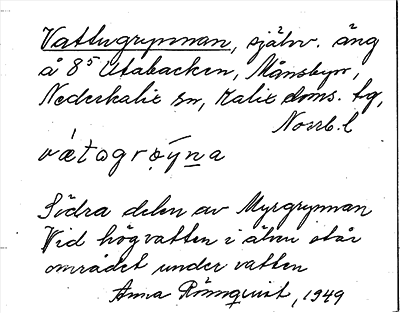 Vattugrynnan, självv. äng
å 8⁵ Utabacken, Månsbyn,
Nederkalix sn, Kalix doms. tg,
Norrb. l
södra delen av Myrgrynnan
Vid högvatten i älven står
området under vatten
Anna Rönnquist, 1949